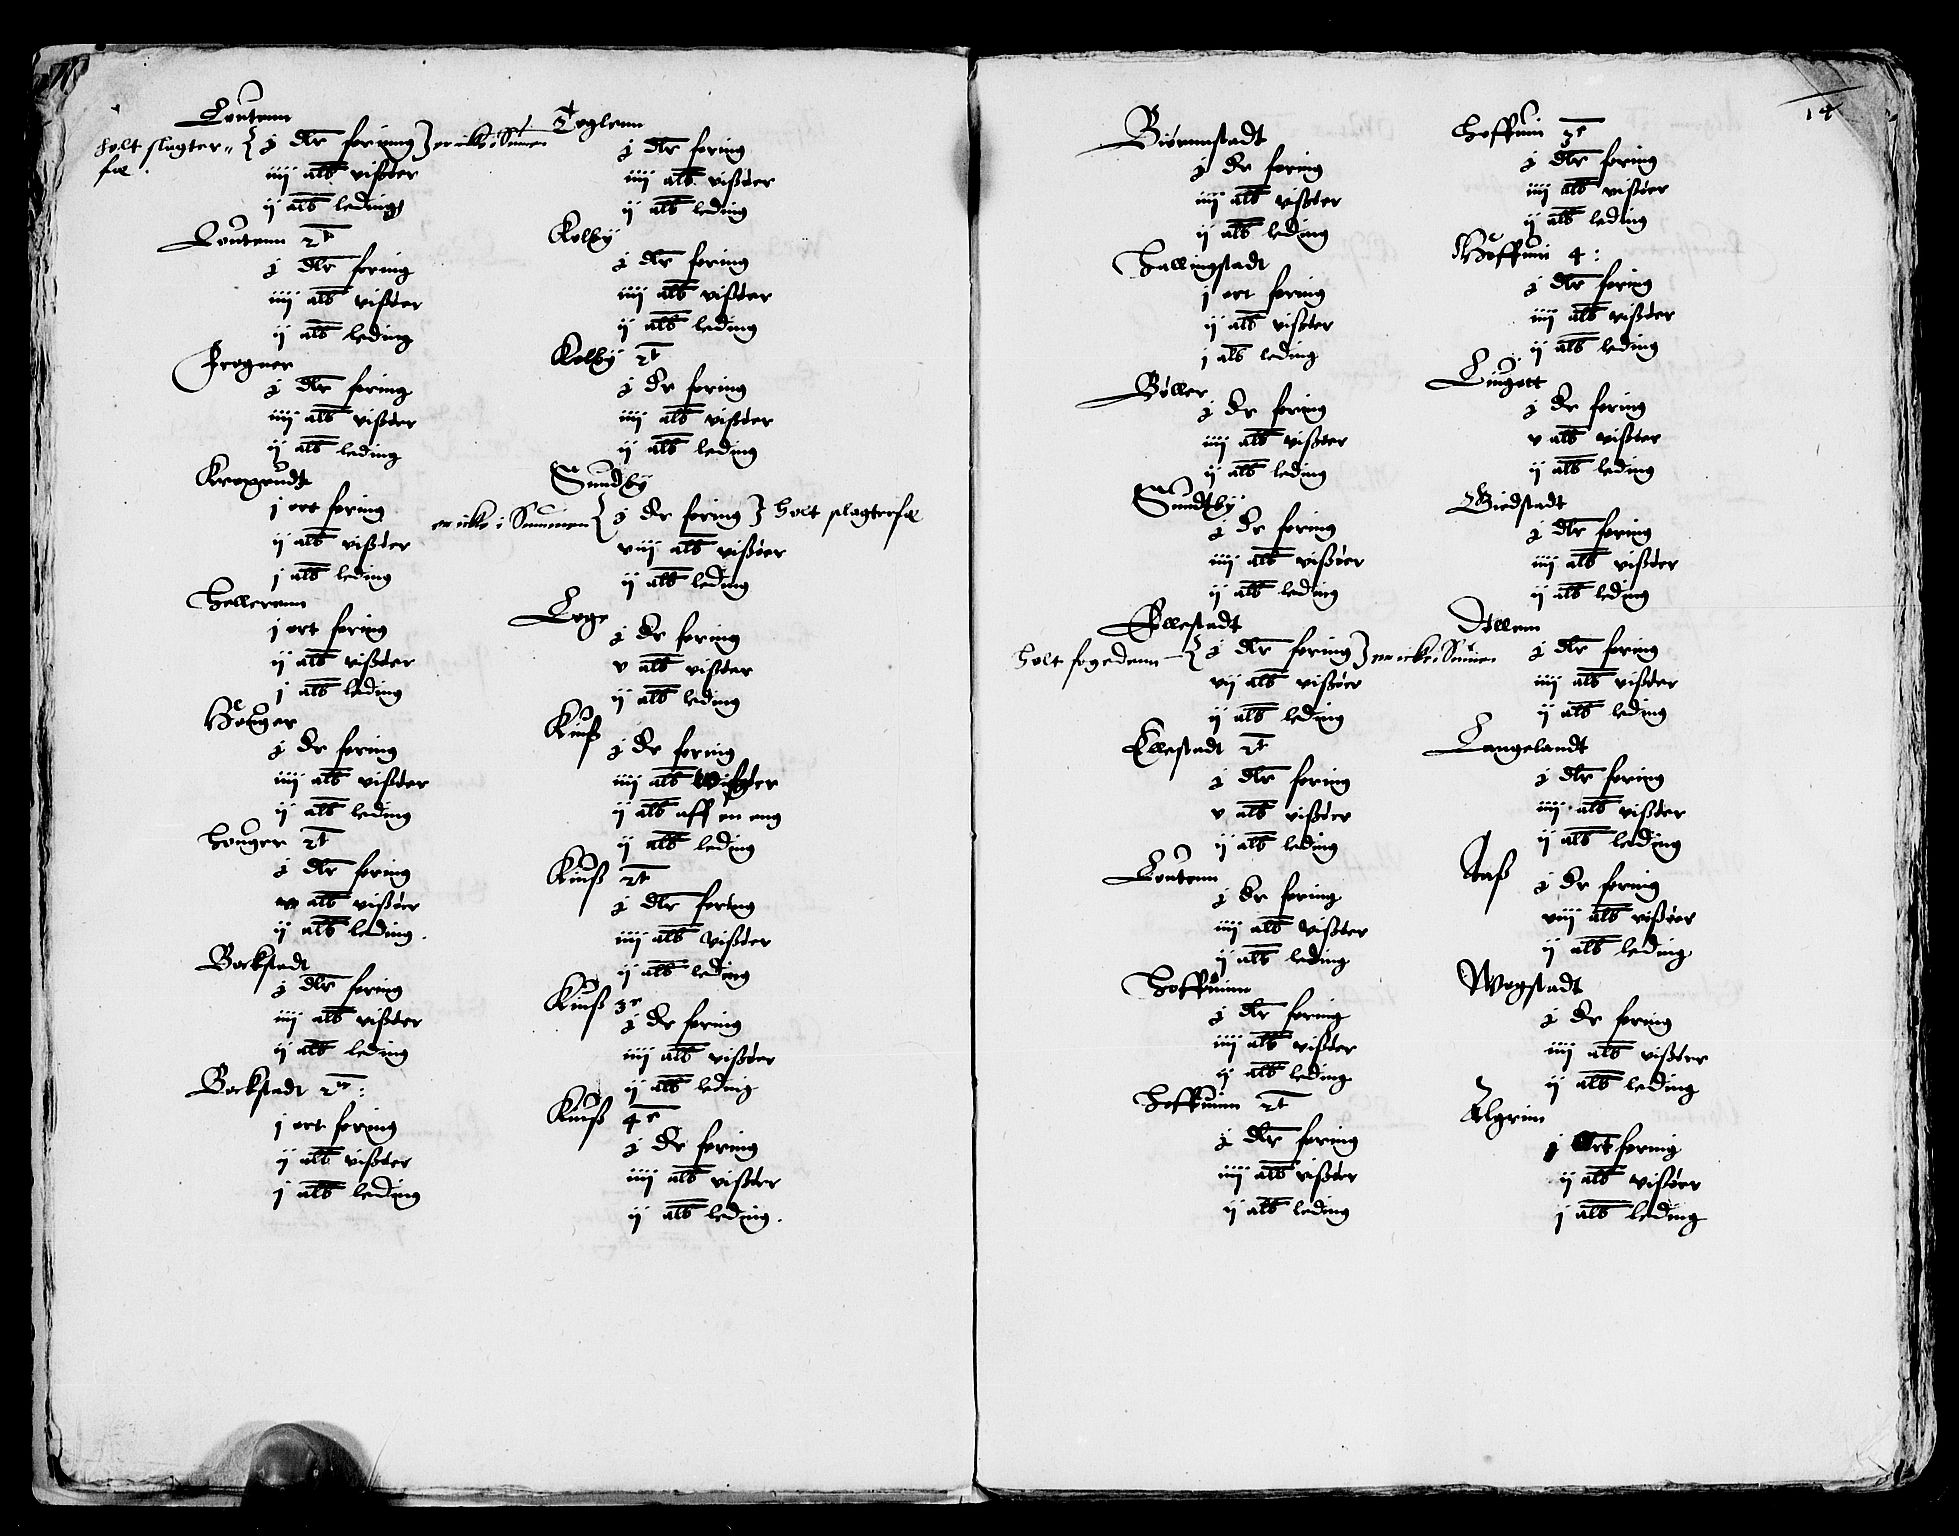 Loutenn
holt slagter„ { j dlr foring } er icke i Summen
fæ.
iiij alb visøer
ij alb leding
Loutenn 2t
j dlr foring
iiij alb visøer
ij alb leding
Frogner
j dlr foring
iiij alb visøer
ij alb leding
Kroprudt
j ort foring
ij alb visøer
j alb leding
Hellerenn
j ort foring
ij alb visøer
j alb leding
Houger
j dr foring
iiij alb visøer
ij alb leding
Houger 2t
j dlr foring
alb visøer
ij alb leding.
Bockstadt
j dlr foring
iiij alb visøer
ij alb leding
Bockstadt 2r:
j ort foring
ij alb visøer
j alb leding
Teglenn
j dlr foring
iiij alb visøer
ij alb leding
Kolby
j dlr foring
iiij alb visøer
ij alb leding
Kolby 2t
j dr foring
iiij alb visøer
ij alb leding
Sundby
er icke i Summen { j dr foring } holt slagterfæ
viij alb visøer
ij alb leding
Loge
j dr foring
v alb visøer
ij alb leding
Kiuß
j dr foring
iiij alb visøer
ij alb aff en eng
ij alb leding
Kiuß 2t
j dlr foring
iiij alb visøer
ij alb leding
Kiuß 3e
j dr foring
iiij alb visøer
ij alb leding
Kiuß 4e
j dr foring
iiij alb visøer
ij alb leding.
14
Biörnnstadt
j dr foring
iiij alb visøer
ij alb leding
Hallingstadt
j ort foring
ij alb visøer
j alb leding
Böller
j dr foring
iiij alb visøer
ij alb leding
Sundtby
j dr foring
iiij alb visøer
ij alb leding
Ellestadt
holt fogedenn { j dlr foring } er icke i Summen
vij alb visøer
ij alb leding
Ellestadt 2t
j dlr foring
v alb visøer
ij alb leding
Loutenn
j dr foring
iiij alb visøer
ij alb leding
Hoffuinn
j dlr foring
iiij alb visøer
ij alb leding
Hoffuinn 2t
j dlr foring
iiij alb visøer
ij alb leding
Hoffuin 3e
j dlr foring
iiij alb visøer
ij alb leding
Hoffuin 4:
j dlr foring
iiij alb visøer
ij alb leding
Liugött
j dr foring
v alb visøer
ij alb leding
Giedstadt
j dlr foring
iiij alb visøer
ij alb leding
Ollem
j dlr foring
iiij alb visøer
ij alb leding
Langelandt
j dlr foring
iiij alb visøer
ij alb leding
Aaß
j dr foring
viij alb visøer
ij alb leding
Wogstadt
j dr foring
iiij alb visøer
ij alb leding
Elgrim
j ort foring
ij alb visøer
j alb leding